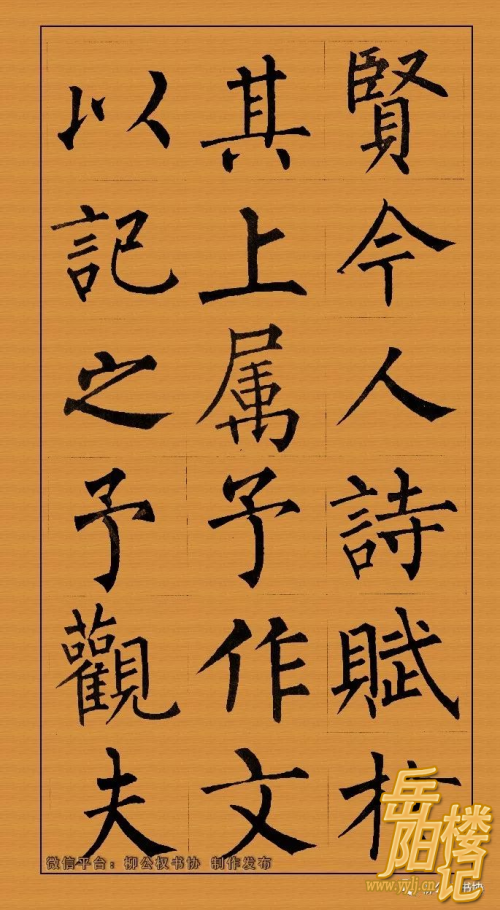 賢今人詩賦於
其上属予作文
以記之予觀夫
微信平台：柳公权书协 制作发布
岳阳楼记
www.yylj.cn
书协